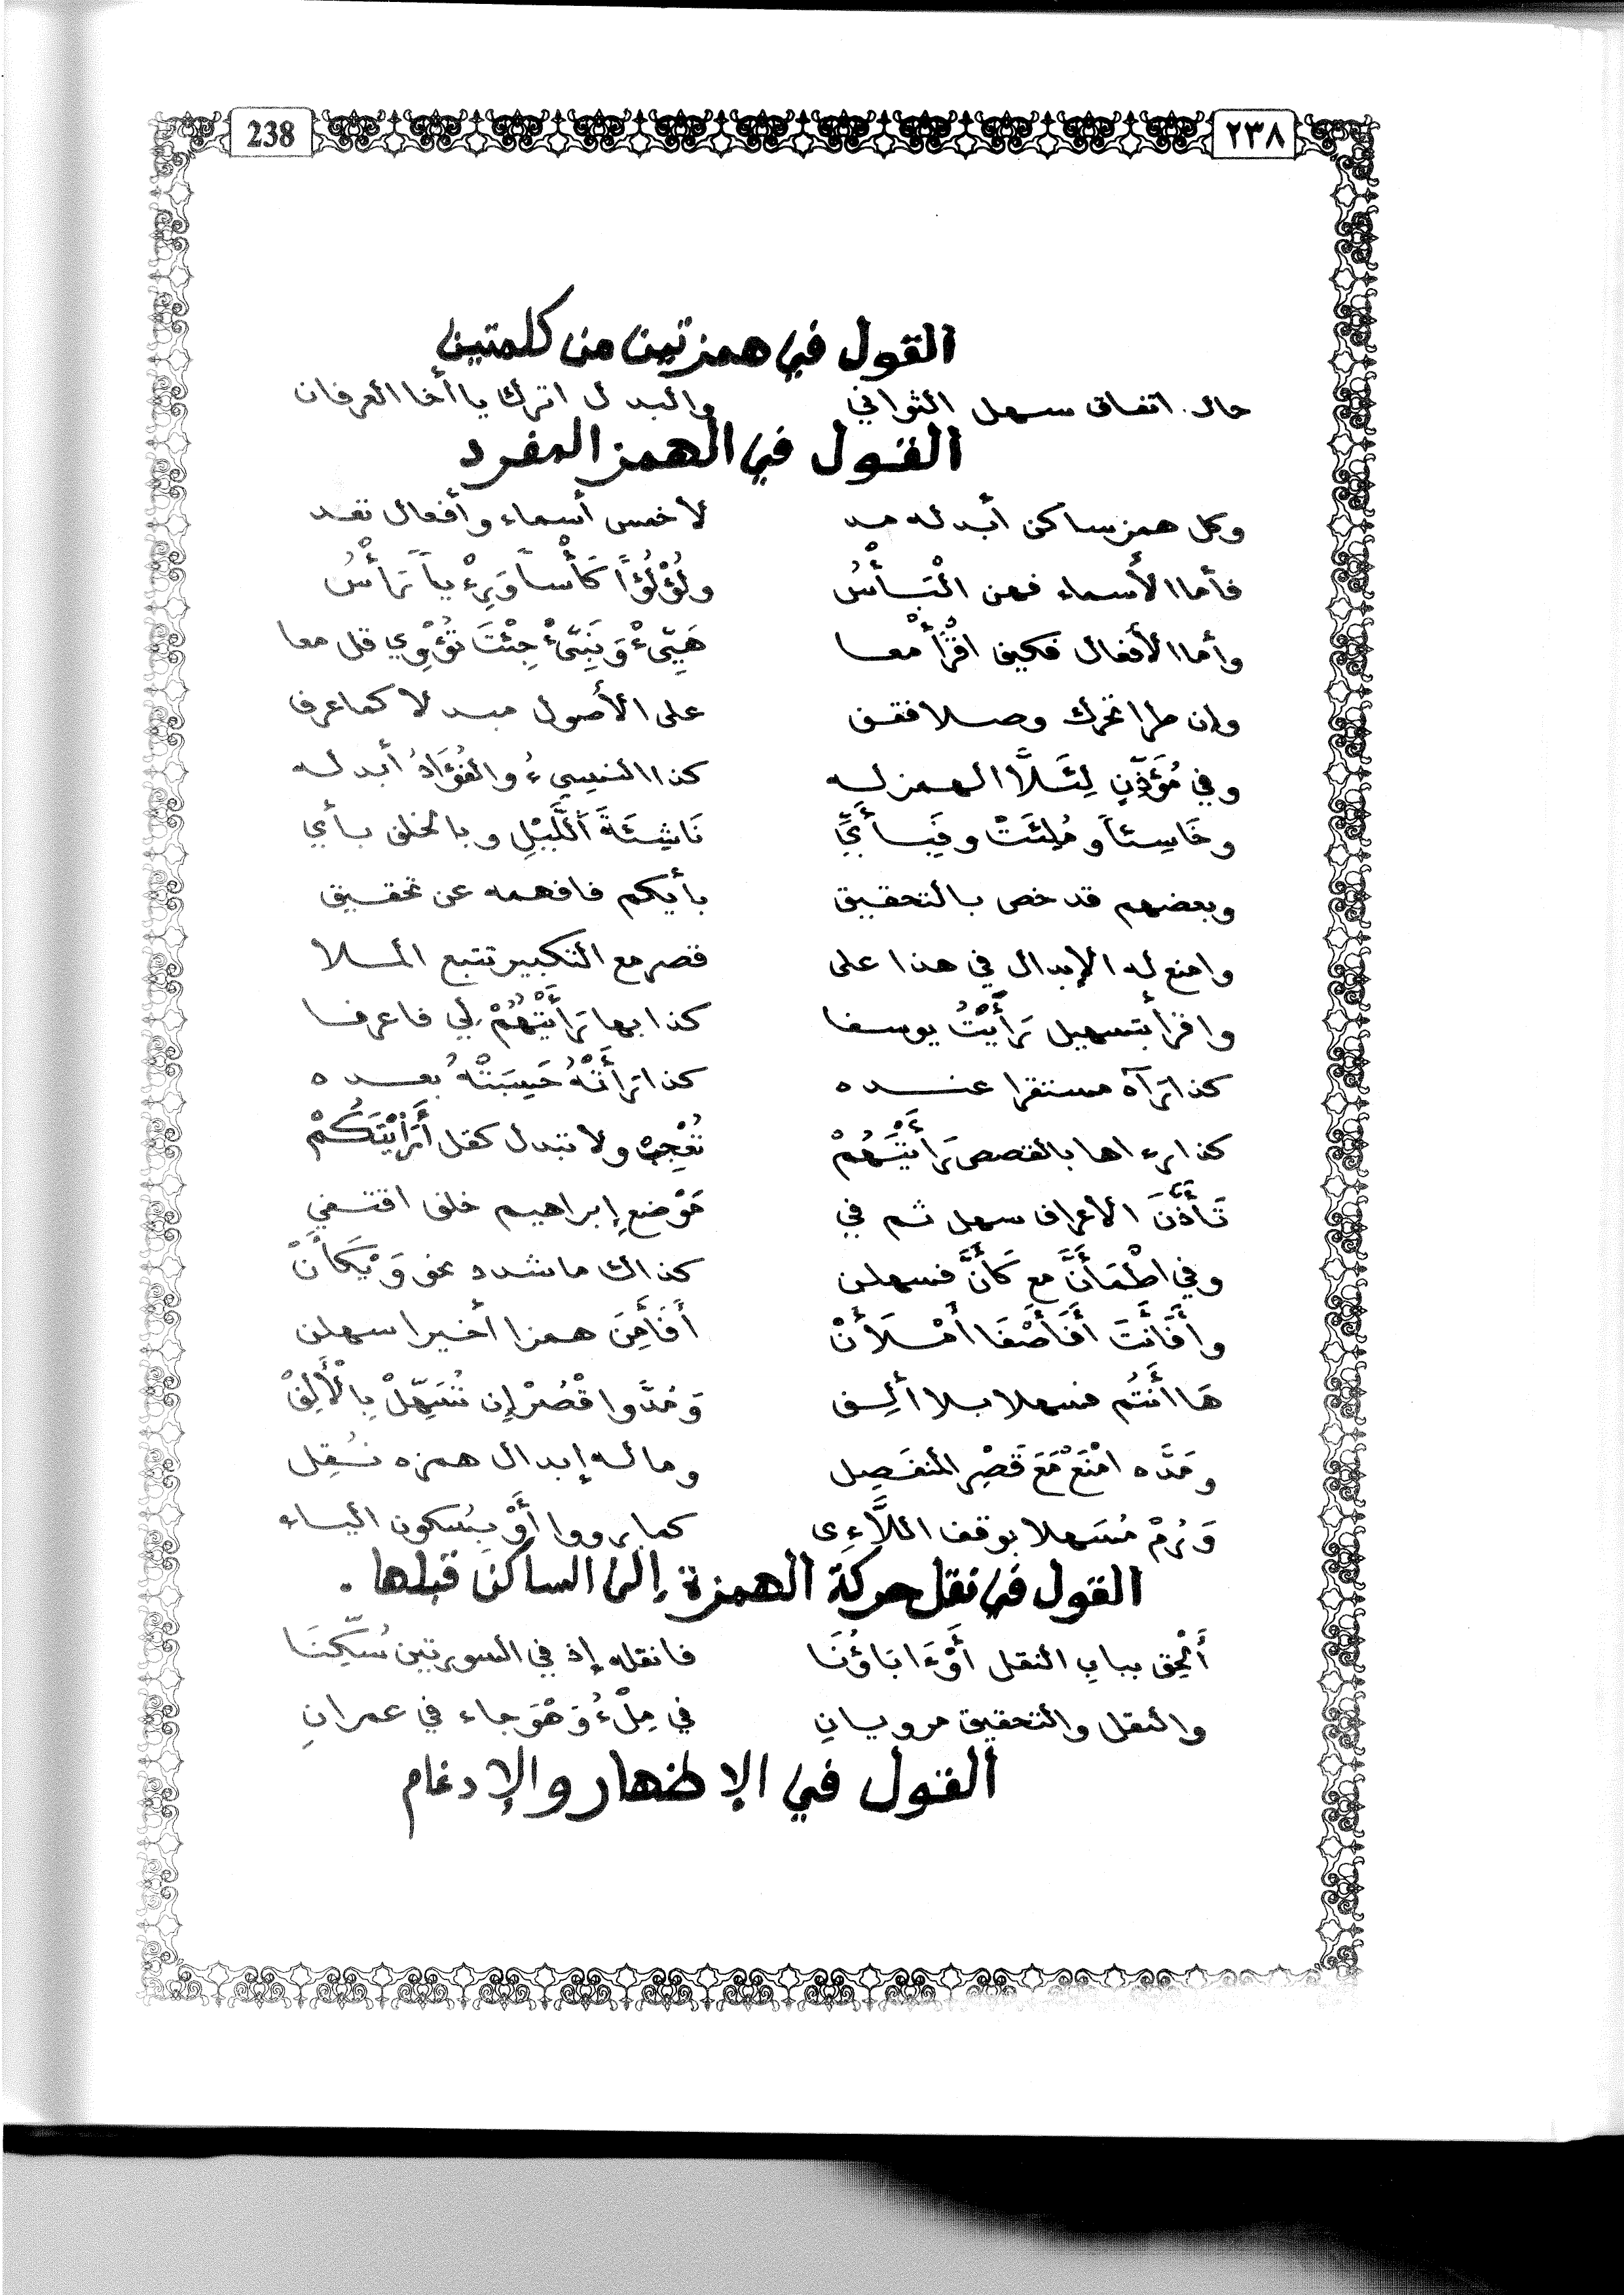 238 ٢٣٨
القول في همزتين من كلمتين
حال اتفاق سهل الثواني والبدل اترك يا أخا العرفان
القول في الهمز المفرد
وكل همز ساكن أبدله مد لا خمس أسماء وأفعال تعد
فأما الأسماء فهن الْبَأْسُ ولُؤْلُؤًا كَأْساً وَرِءْياً رَأْسُ
وأما الأفعال فكيف اقْرَأْ معا هَيِّىءْ وَنَبِّىءْ جِئْتَ تُؤْوِي قل معا
وإن طرا تحرك وصلا فقف على الأصول مبدلا كما عرف
وفي مُؤَذِّنٍ لِئَلَّا الهمز له كذا النسيءُ والفُؤَادُ أبدله
وخَاسِئاً ومُلِئَتْ وفَبِأَيِّ نَاشِئَةَ اللَّيْلِ وبالخلف بأي
وبعضهم قد خص بالتحقيق بأيكم فافهمه عن تحقيق
وامنع له الإبدال في هذا على قصر مع التكبير تتبع الملا
واقرأ بتسهيل رَأَيْتُ يوسفا كذا بها رَأَيْتُهُمْ لي فاعرفا
كذا رَآهُ مستقرا عنده كذا رَأَتْهُ حَسِبَتْهُ بعده
كذا رءاها بالقصص رَأَيْتَهُمْ تُعْجِبْ ولا تبدل كقل أَرَأَيْتَكُمْ
تَأَذَّنَ الاعراف سهل ثم في مَوْضعِ إبراهيم خلف اقتفي
وفي اطْمَأَنَّ مع كَأَنَّ فسهلن كذاك ما شدد نحو وَيْكَأَنْ
وأَفَأَنْتَ أَفَأَصْفَا أَمْلَأَنْ أَفَأَمِنَ همزا أخيرا سهلن
هَا أَنْتُم مسهلا بلا ألِف وَمُدَّ واقْصُرْ إن تُسَهِّلْ بِالْأَلِفْ
ومَدَّه امْنَعْ مَعَ قَصْرِ المنفصِل وما له إبدال همزه نُقِل
وَرُمْ مُسَهلا بوقف اللَّاءِى كما رووا أَوْ بِسُكون الياء
القول في نقل حركة الهمزة إلى الساكن قبلها .
أَلْحِق ببابِ النقل أَوْءَابَاؤُنَا فانقله إذ في السورتين سُكِّنَا
والنقل والتحقيق مرويانِ في مِلْءُ وَهْوَ جاء في عمرانِ
القول في الإظهار والإدغام